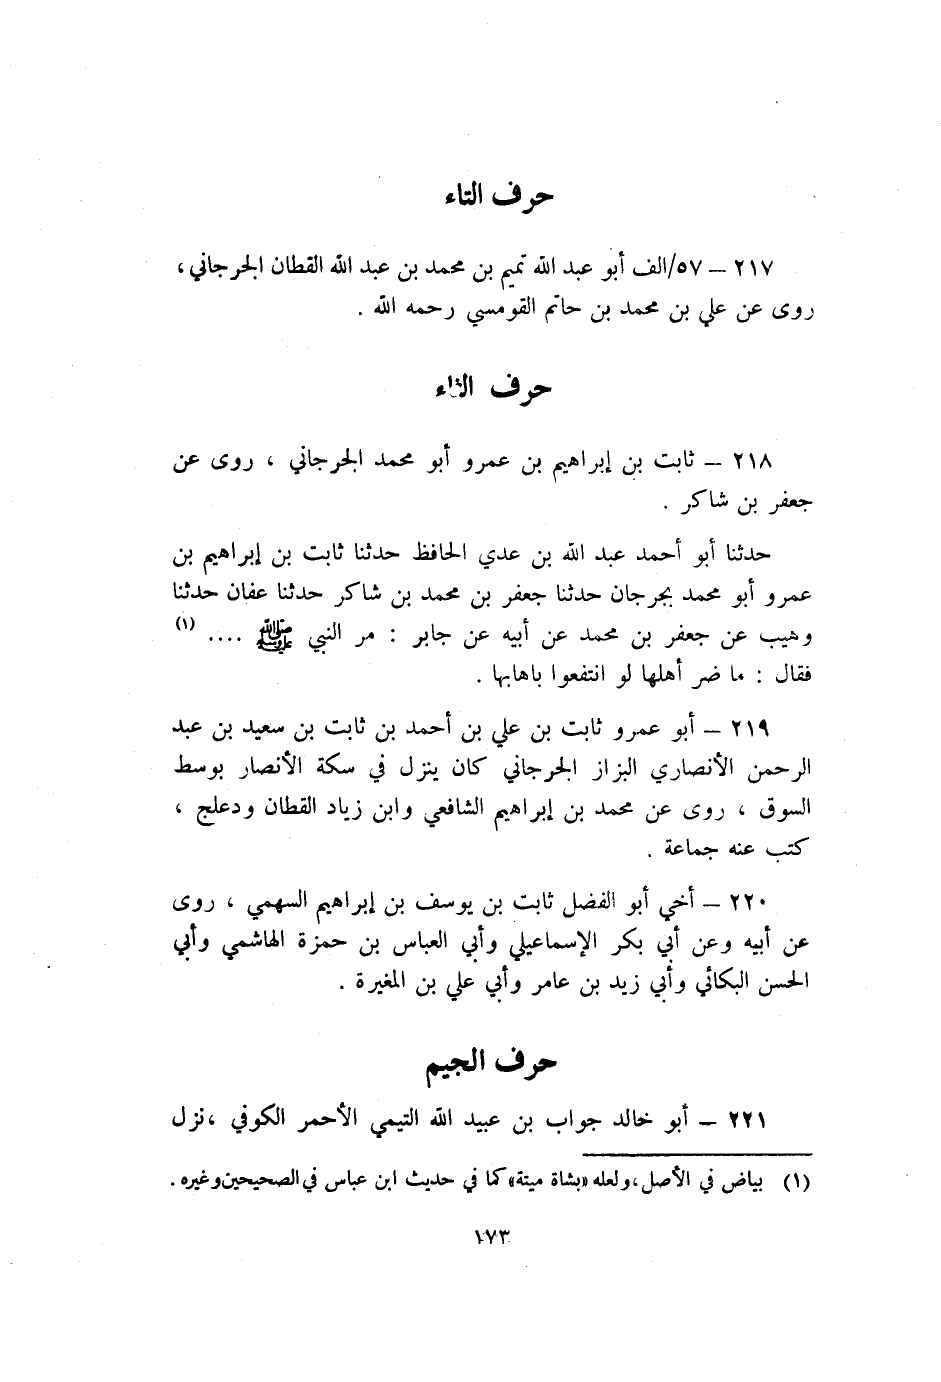 حرف التاء
٢١٧ – ٥٧/الف أبو عبد الله تميم بن محمد بن عبد الله القطان الجرجاني ،
روى عن علي بن محمد بن حاتم القومسي رحمه الله .
حرف الثاء
٢١٨ – ثابت بن إبراهيم بن عمرو أبو محمد الجرجاني ، روى عن
جعفر بن شاكر .
حدثنا أبو أحمد عبد الله بن عدي الحافظ حدثنا ثابت بن إبراهيم بن
عمرو أبو محمد بجرجان حدثنا جعفر بن محمد بن شاكر حدثنا عفان حدثنا
وهيب عن جعفر بن محمد عن أبيه عن جابر : مر النبي ﷺ .... (١)
فقال : ما ضر أهلها لو انتفعوا باهابها .
٢١٩ – أبو عمرو ثابت بن علي بن أحمد بن ثابت بن سعيد بن عبد
الرحمن الأنصاري البزاز الجرجاني كان ينزل في سكة الأنصار بوسط
السوق ، روى عن محمد بن إبراهيم الشافعي وابن زياد القطان ودعلج ،
كتب عنه جماعة .
٢٢٠ – أخي أبو الفضل ثابت بن يوسف بن إبراهيم السهمي ، روى
عن أبيه وعن أبي بكر الإسماعيلي وأبي العباس بن حمزة الهاشمي وأبي
الحسن البكائي وأبي زيد بن عامر وأبي علي بن المغيرة .
حرف الجيم
٢٢١ – أبو خالد جواب بن عبيد الله التيمي الأحمر الكوفي ،نزل
(١) بياض في الأصل،ولعله «بشاة ميتة» كما في حديث ابن عباس في الصحيحين وغيره .
١٧٣